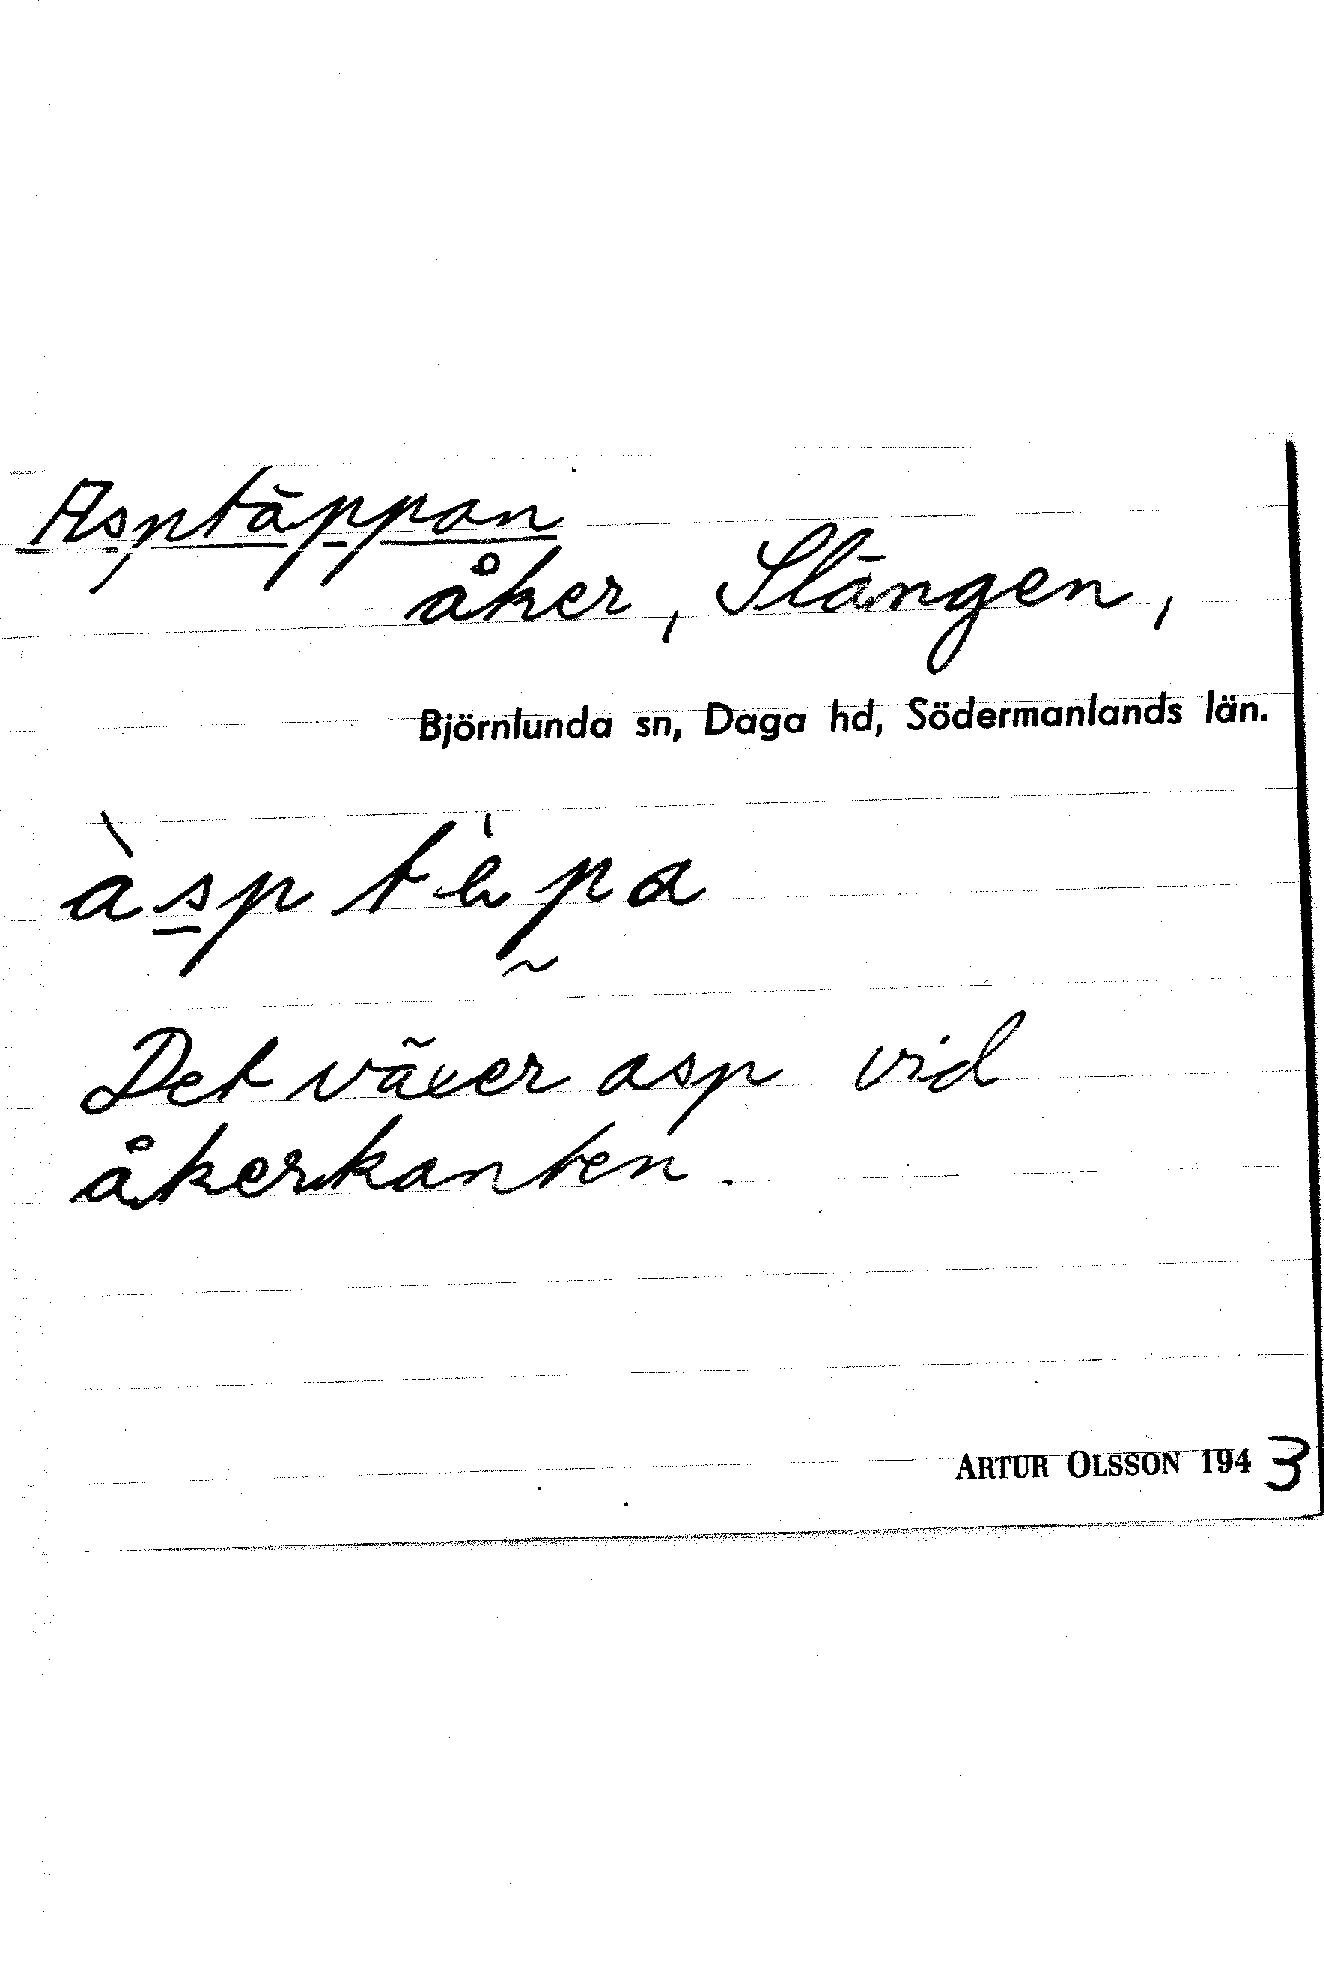 Asptäppan
åker, Slängen,
Björnlunda sn, Daga hd, Södermanlands län.
àsp tèpa
Det växer asp vid
åkerkanten.
ARTUR OLSSON 1943